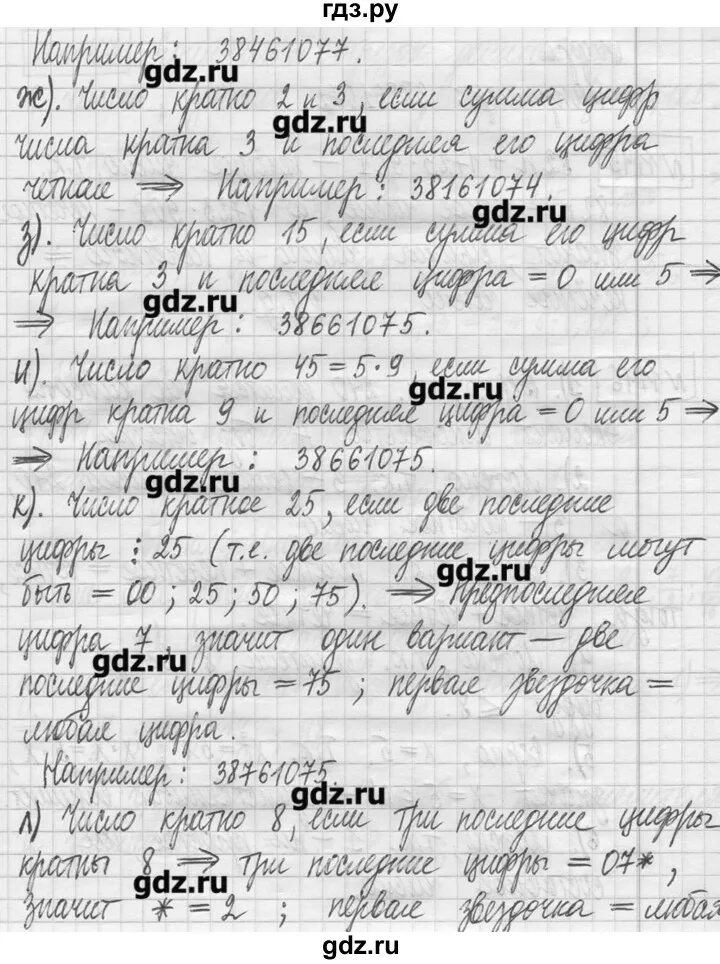 гдз.ру
Например: 38461077.
gdz.ru
ж). Число кратно 2 и 3, если сумма цифр
gdz.ru
числа кратна 3 и последняя его цифра
четная ⇒ Например: 38161074.
gdz.ru
з). Число кратно 15, если сумма его цифр
кратна 3 и последняя цифра = 0 или 5 ⇒
gdz.ru
⇒ Например: 38661075.
и). Число кратно 45 = 5·9, если сумма его
gdz.ru
цифр кратна 9 и последняя цифра = 0 или 5 ⇒
⇒ Например: 38661075.
gdz.ru
к). Число кратное 25, если две последние
цифры ⋮ 25 (т.е. две последние цифры могут
gdz.ru
быть = 00; 25; 50; 75). ⇒ Предпоследняя
цифра 7, значит один вариант — две
gdz.ru
последние цифры = 75; первая звездочка =
любая цифра.
Например: 38761075.
gdz.ru
л) Число кратно 8, если три последние цифры
кратны 8 ⇒ три последние цифры = 07*,
gdz.ru
значит * = 2; первая звездочка = любая
gdz.ru